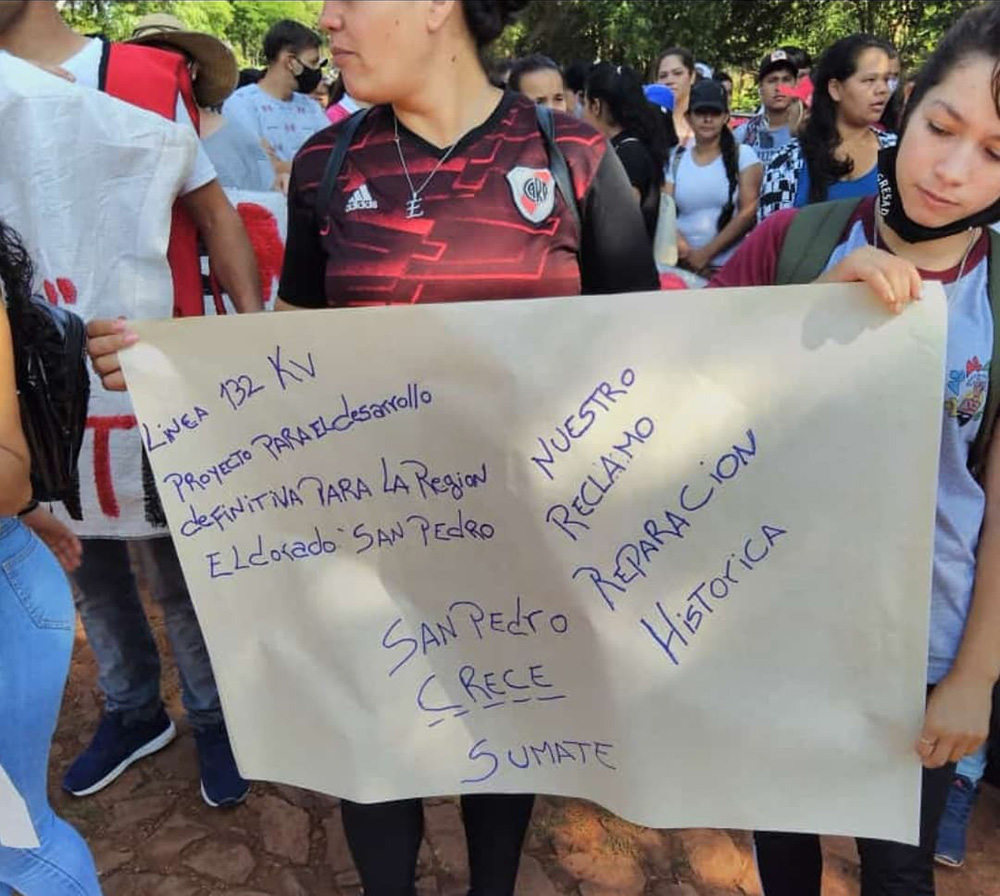 LiNEA 132 KV
PROYECTO PARA ELdesarrollo
deFiNiTiVA PARA LA Region
ELdorado SAN PEdRO
NUESTRO
RECLAMO
REPARACiON
HiSTORiCA
SAN PEdrO
CRECE
SUMATE
adidas
CARP
EGRESAD
T